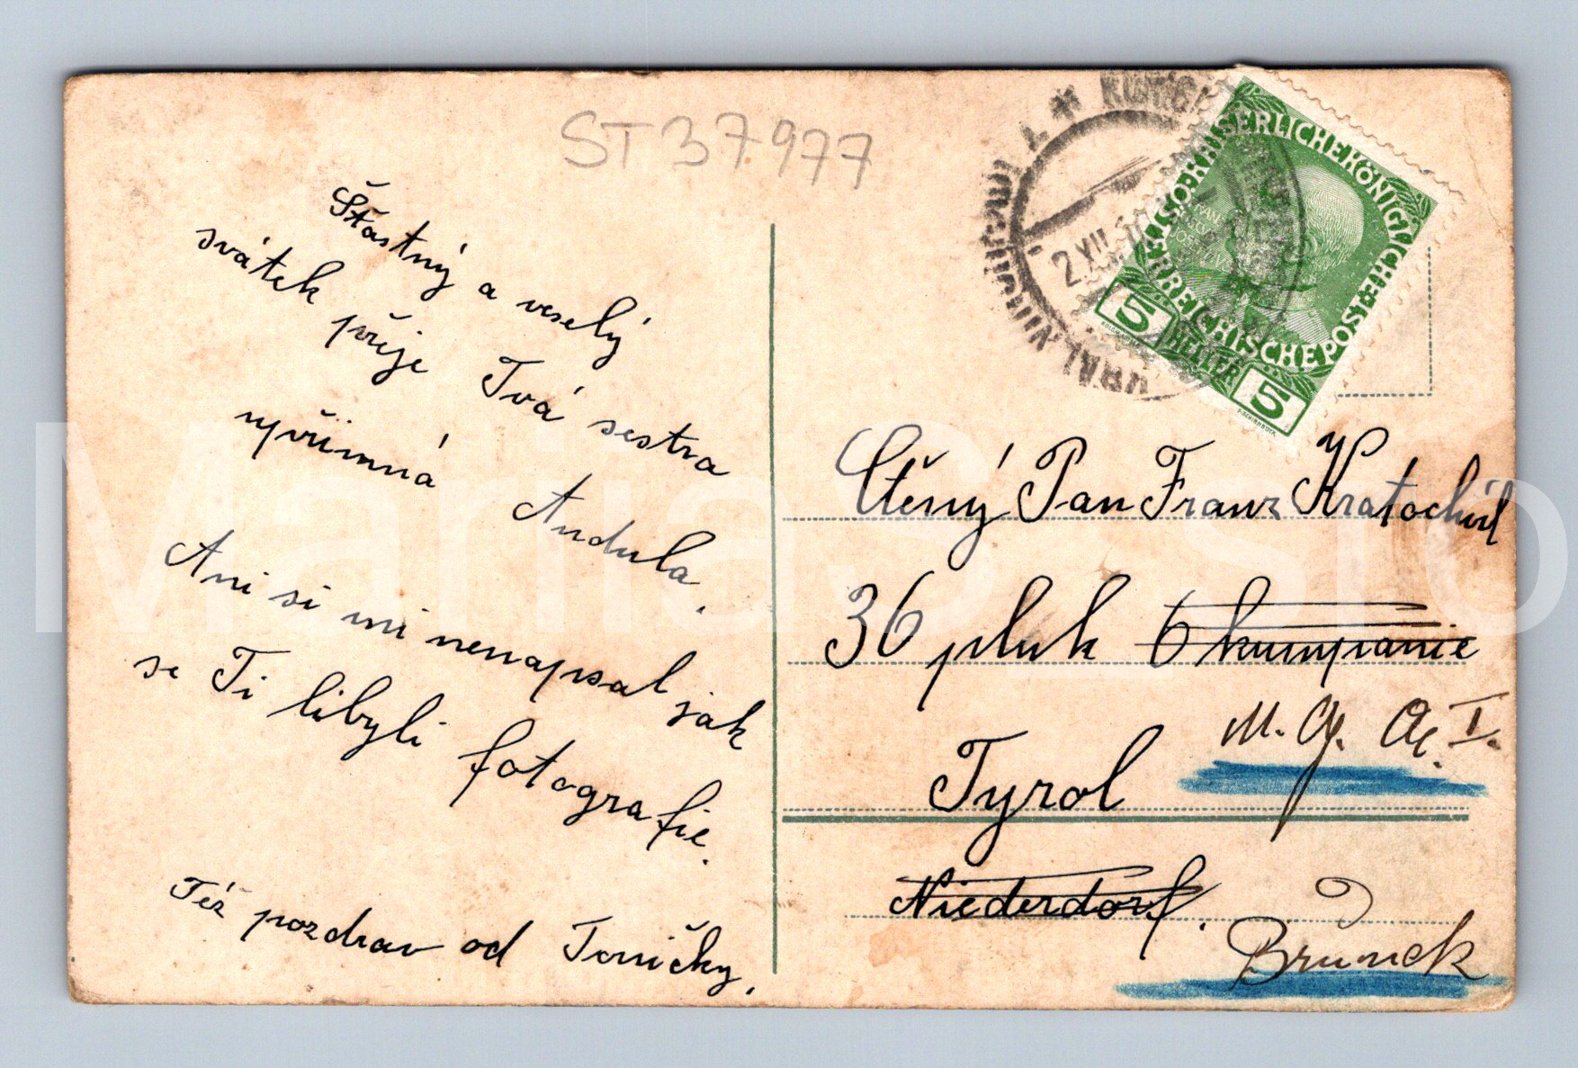 ST 37977
Šťastný a veselý
svátek přeje Tvá sestra
upřimná Andula.
Ani si mi nenapsal jak
se Ti libyli fotografie.
Též pozdrav od Toničky.
2 XII 10
KAISERLICHEKÖNIGLICHE
ÖSTERREICHISCHEPOST
5 HELLER 5
Ctěný Pan Franz Kratochvíl
36 pluk 6 kumpanie
M. G. A. I.
Tyrol
Niederdorf.
Bruneck